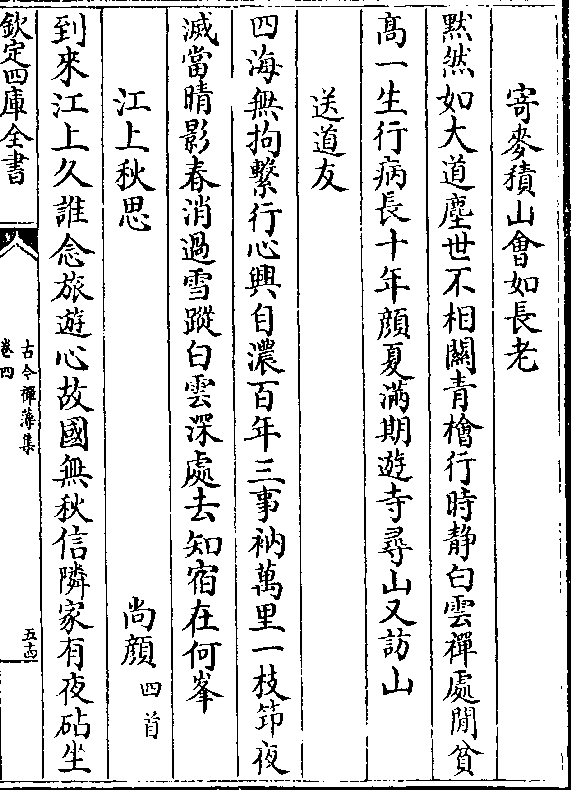 寄麥積山會如長老
默然如大道塵世不相關青檜行時静白雲禪處閒貧
高一生行病長十年顔夏滿期遊寺尋山又訪山
送道友
四海無拘繫行心興自濃百年三事衲萬里一枝筇夜
減當晴影春消過雪蹤白雲深處去知宿在何峯
江上秋思
尚顔四首
到來江上久誰念旅遊心故國無秋信隣家有夜砧坐
欽定四庫全書
古今禪藻集
卷四
五十四